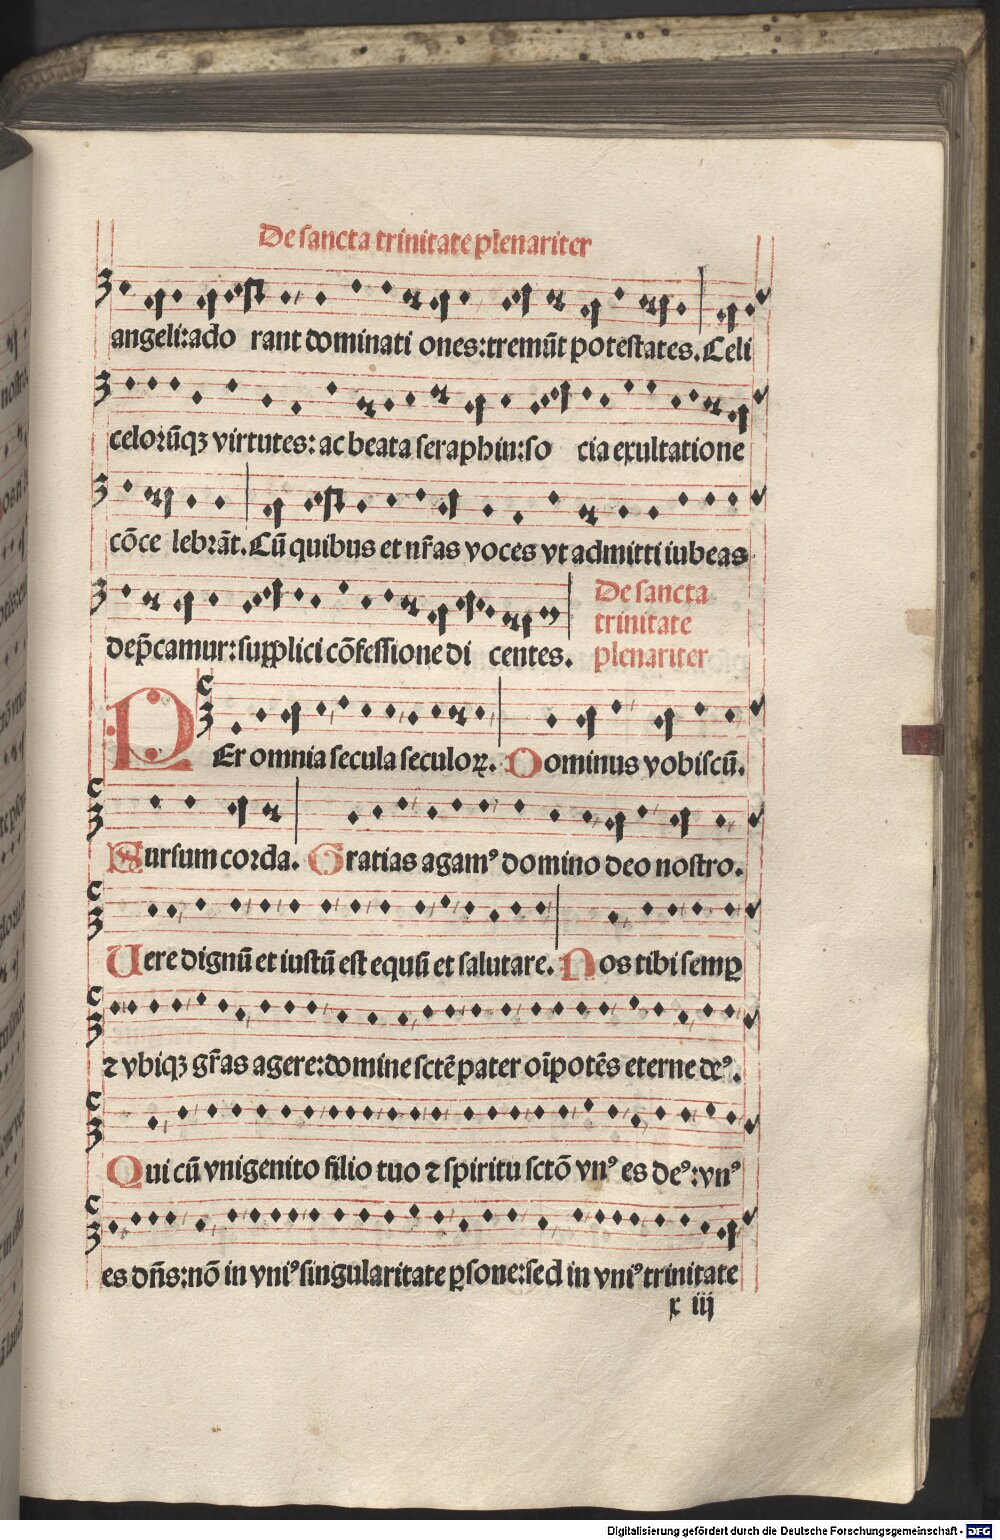 De sancta trinitate plenariter
angeli:ado rant dominati ones:tremũt potestates. Celi
celorũqꝫ virtutes: ac beata seraphin:so cia exultatione
cõce lebrãt. Cũ quibus et nr̃as voces vt admitti iubeas
dep̃camur:supplici cõfessione di centes.
De sancta
trinitate
plenariter
PEr omnia secula seculoꝝ. Dominus vobiscũ.
Sursum corda. Gratias agamꝰ domino deo nostro.
Uere dignũ et iustũ est equũ et salutare. Nos tibi semꝑ
⁊ vbiqꝫ gr̃as agere:domine sctẽ pater oĩpotẽs eterne deꝰ.
Qui cũ vnigenito filio tuo ⁊ spiritu sctõ vnꝰ es deꝰ:vnꝰ
es dñs:nõ in vniꝰ singularitate ꝑsone:sed in vniꝰ trinitate
x iij
Digitalisierung gefördert durch die Deutsche Forschungsgemeinschaft - DFG